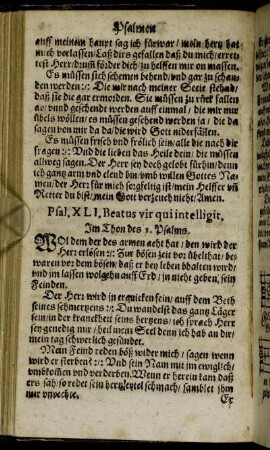 Psalmen
auff meinem haupt sag ich fürwar / mein hertz hat
mich verlassen / Laß dirs gefallen daß du mich / erret-
test Herr / drumb förder dich / zu helffen mir on massen.
Es müssen sich schemen behend / und gar zu schan-
den werden :/: Die mir nach meiner Seele stehnd /
daß sie die gar ermorden. Sie müssen zu rück fallen
all / und geschendt werden auff einmal / die mir nur
übels wöllen / es müssen geschendet werden ja / die da
sagen von mir da da / die wird Gott niderfällen.
Es müssen frisch und frölich sein / alle die nach dir
fragen :/: Und die lieben das Heile dein / die müssen
allweg sagen. Der Herr sey doch gelobt fürhin / denn
ich gantz arm und elend bin / umb willen Gottes Na-
men / der Herr für mich sorgfeltig ist / mein Helffer uñ
Retter du bist / mein Gott verzeuch nicht / Amen.
Psal. XLI, Beatus vir qui intelligit,
Im Thon des 1. Psalms.
WOl dem der des armen acht hat / den wird der
Herr erlösen :/: Zur bösen zeit vor übelthat / be-
waren vor dem bösen / daß er bey leben bhalten werd /
und jm lassen wolgehn auff Erd / jn nicht geben, sein
Feinden.
Der Herr wird jn erquicken sein / auff dem Beth
seines schmertzens :/: Du wandelst das gantz Läger
sein / in der kranckheit seins hertzens / ich sprach Herr
sey genedig mir / heil mein Seel denn ich hab an dir /
mein tag schwerlich gesündet.
Mein Feind reden böß wider mich / sagen wenn
wird er sterben? :/: Und sein Nam mit jm ewiglich /
umbkommen und verderben. Wenn er herein kam daß
ers sah / so redet sein hertz eytel schmach / samblet jhm
nur unrechte.
Er